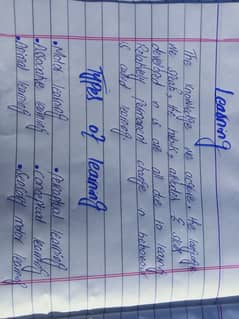 Learning
The knowledge we acquire, the language
we speak, the habits, attitudes & skill
developed in us are all due to learning
Relatively Permanent change in behaviour
is called learning.
Types of learning
• Motor learning • Perceptual learning
• Associative learning • Conceptual learning
• Animal learning • Sensory motor learning